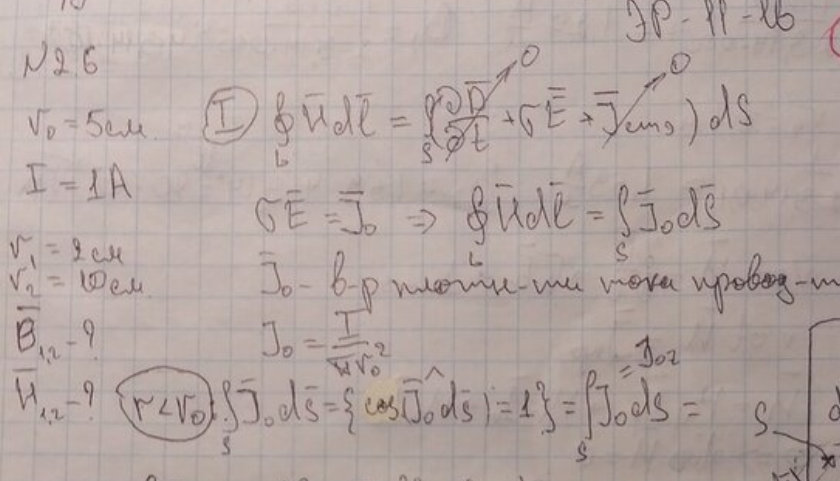 ЭР-11-16
№26
r₀ = 5см.
I = 1А
r₁ = 2см
r₂ = 10см.
B̄₁,₂ - ?
H̄₁,₂ - ?
I ∮_L H̄dl̄ = ∫_S (∂D̄/∂t → 0 + σĒ + J̄стэ → 0) dS̄
σĒ = J̄₀ ⇒ ∮_L H̄dl̄ = ∫_S J̄₀dS̄
J̄₀ - в-р плотн-ти тока провод-т
J₀ = I/πr₀²
r<r₀: ∫_S J̄₀ds̄ = {cos(J̄₀^ds̄) = 1} = ∫_S J₀dS =
= J₀z
S